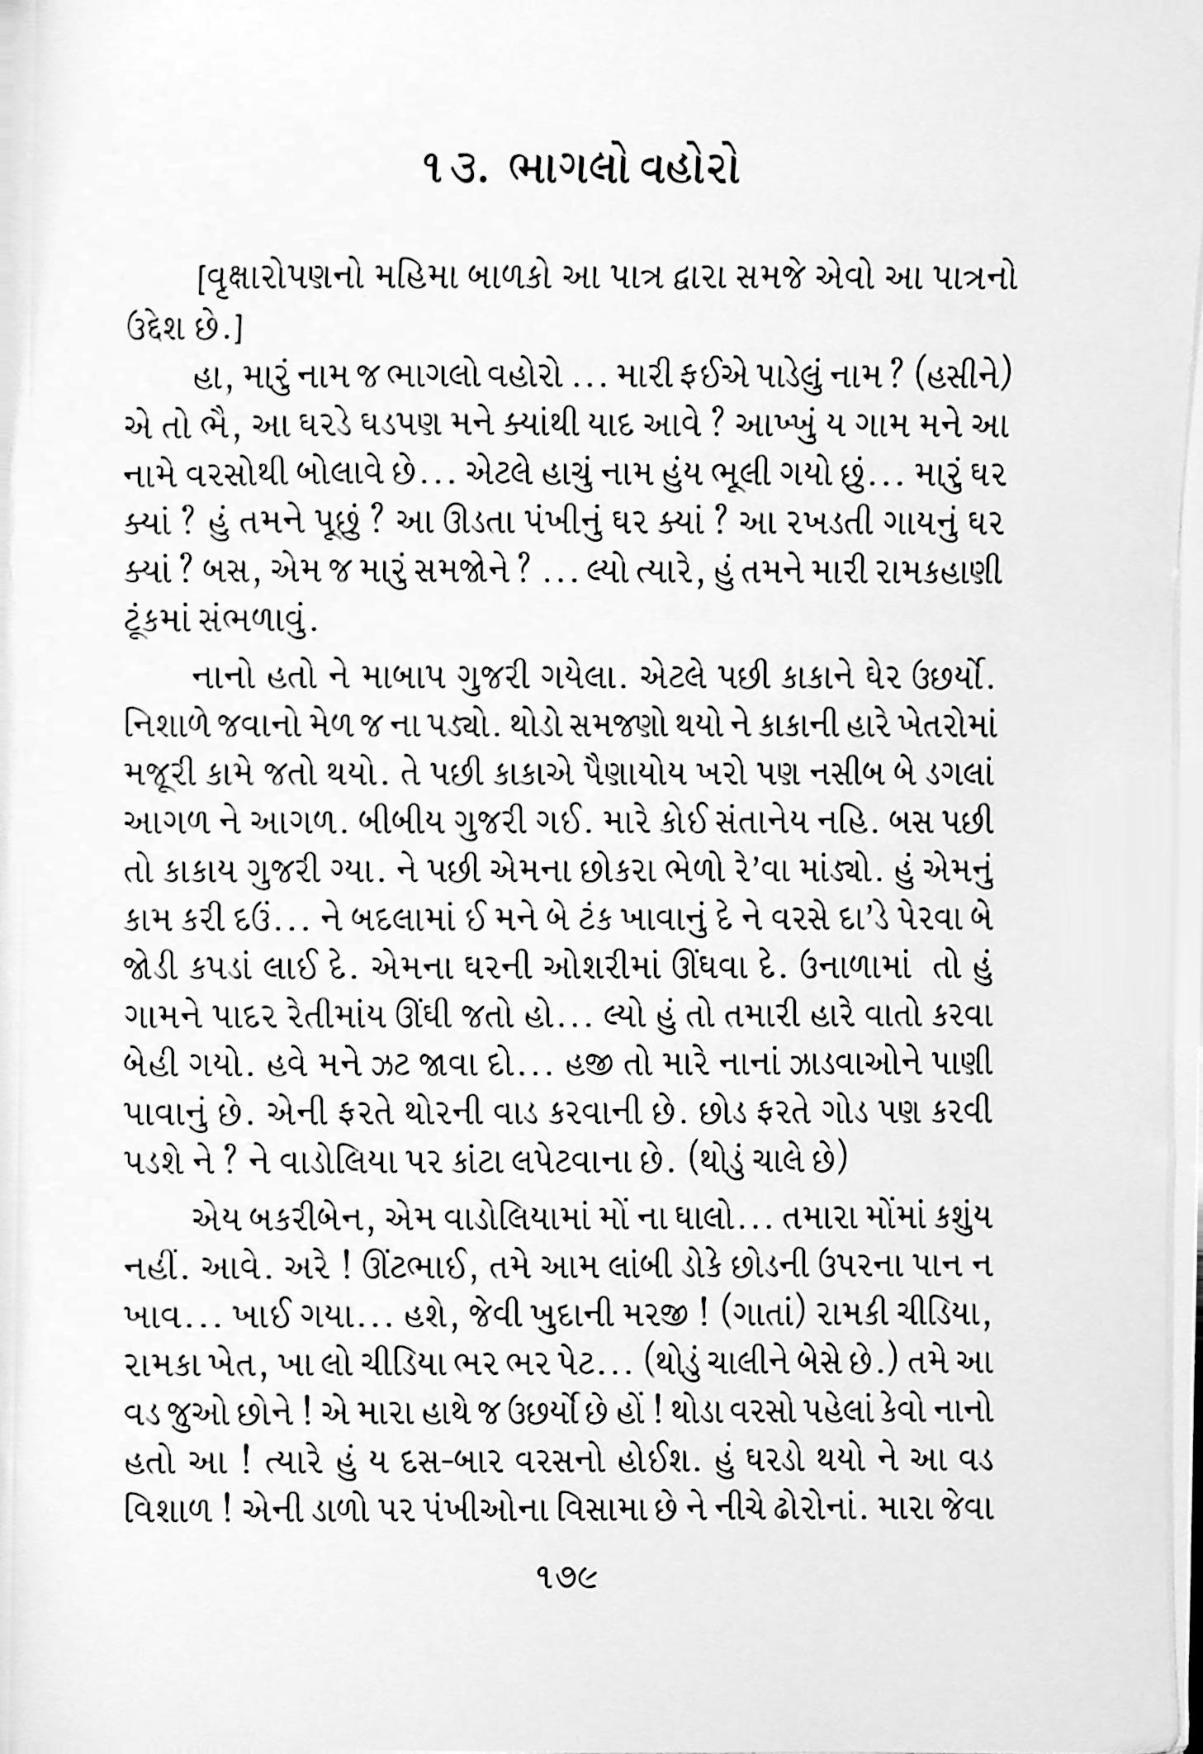 ૧૩. ભાગલો વહોરો
[વૃક્ષારોપણનો મહિમા બાળકો આ પાત્ર દ્વારા સમજે એવો આ પાત્રનો
ઉદ્દેશ છે.]
હા, મારું નામ જ ભાગલો વહોરો ... મારી ફઈએ પાડેલું નામ ? (હસીને)
એ તો ભૈ, આ ઘરડે ઘડપણ મને ક્યાંથી યાદ આવે ? આખ્ખું ય ગામ મને આ
નામે વરસોથી બોલાવે છે... એટલે હાચું નામ હુંય ભૂલી ગયો છું... મારું ઘર
ક્યાં ? હું તમને પૂછું ? આ ઊડતા પંખીનું ઘર ક્યાં ? આ રખડતી ગાયનું ઘર
ક્યાં ? બસ, એમ જ મારું સમજોને ? ... લ્યો ત્યારે, હું તમને મારી રામકહાણી
ટૂંકમાં સંભળાવું.
નાનો હતો ને માબાપ ગુજરી ગયેલા. એટલે પછી કાકાને ઘેર ઉછર્યો.
નિશાળે જવાનો મેળ જ ના પડ્યો. થોડો સમજણો થયો ને કાકાની હારે ખેતરોમાં
મજૂરી કામે જતો થયો. તે પછી કાકાએ પૈણાયોય ખરો પણ નસીબ બે ડગલાં
આગળ ને આગળ. બીબીય ગુજરી ગઈ. મારે કોઈ સંતાનેય નહિ. બસ પછી
તો કાકાય ગુજરી ગ્યા. ને પછી એમના છોકરા ભેળો રે’વા માંડ્યો. હું એમનું
કામ કરી દઉં... ને બદલામાં ઈ મને બે ટંક ખાવાનું દે ને વરસે દા’ડે પેરવા બે
જોડી કપડાં લાઈ દે. એમના ઘરની ઓશરીમાં ઊંઘવા દે. ઉનાળામાં તો હું
ગામને પાદર રેતીમાંય ઊંઘી જતો હો... લ્યો હું તો તમારી હારે વાતો કરવા
બેહી ગયો. હવે મને ઝટ જાવા દો... હજી તો મારે નાનાં ઝાડવાઓને પાણી
પાવાનું છે. એની ફરતે થોરની વાડ કરવાની છે. છોડ ફરતે ગોડ પણ કરવી
પડશે ને ? ને વાડોલિયા પર કાંટા લપેટવાના છે. (થોડું ચાલે છે)
એય બકરીબેન, એમ વાડોલિયામાં મોં ના ઘાલો... તમારા મોંમાં કશુંય
નહીં. આવે. અરે ! ઊંટભાઈ, તમે આમ લાંબી ડોકે છોડની ઉપરના પાન ન
ખાવ... ખાઈ ગયા... હશે, જેવી ખુદાની મરજી ! (ગાતાં) રામકી ચીડિયા,
રામકા ખેત, ખા લો ચીડિયા ભર ભર પેટ... (થોડું ચાલીને બેસે છે.) તમે આ
વડ જુઓ છોને ! એ મારા હાથે જ ઉછર્યો છે હોં ! થોડા વરસો પહેલાં કેવો નાનો
હતો આ ! ત્યારે હું ય દસ-બાર વરસનો હોઈશ. હું ઘરડો થયો ને આ વડ
વિશાળ ! એની ડાળો પર પંખીઓના વિસામા છે ને નીચે ઢોરોનાં. મારા જેવા
૧૭૯